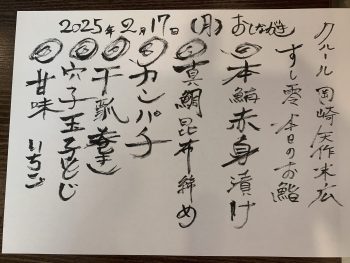 2025年2月17日(月) おしながき
クルール岡崎矢作末広
すし零 本日のお鮨
本鮪赤身漬け
真鯛昆布〆め
カンパチ
干瓢巻き
穴子玉子とじ
甘味 いちご